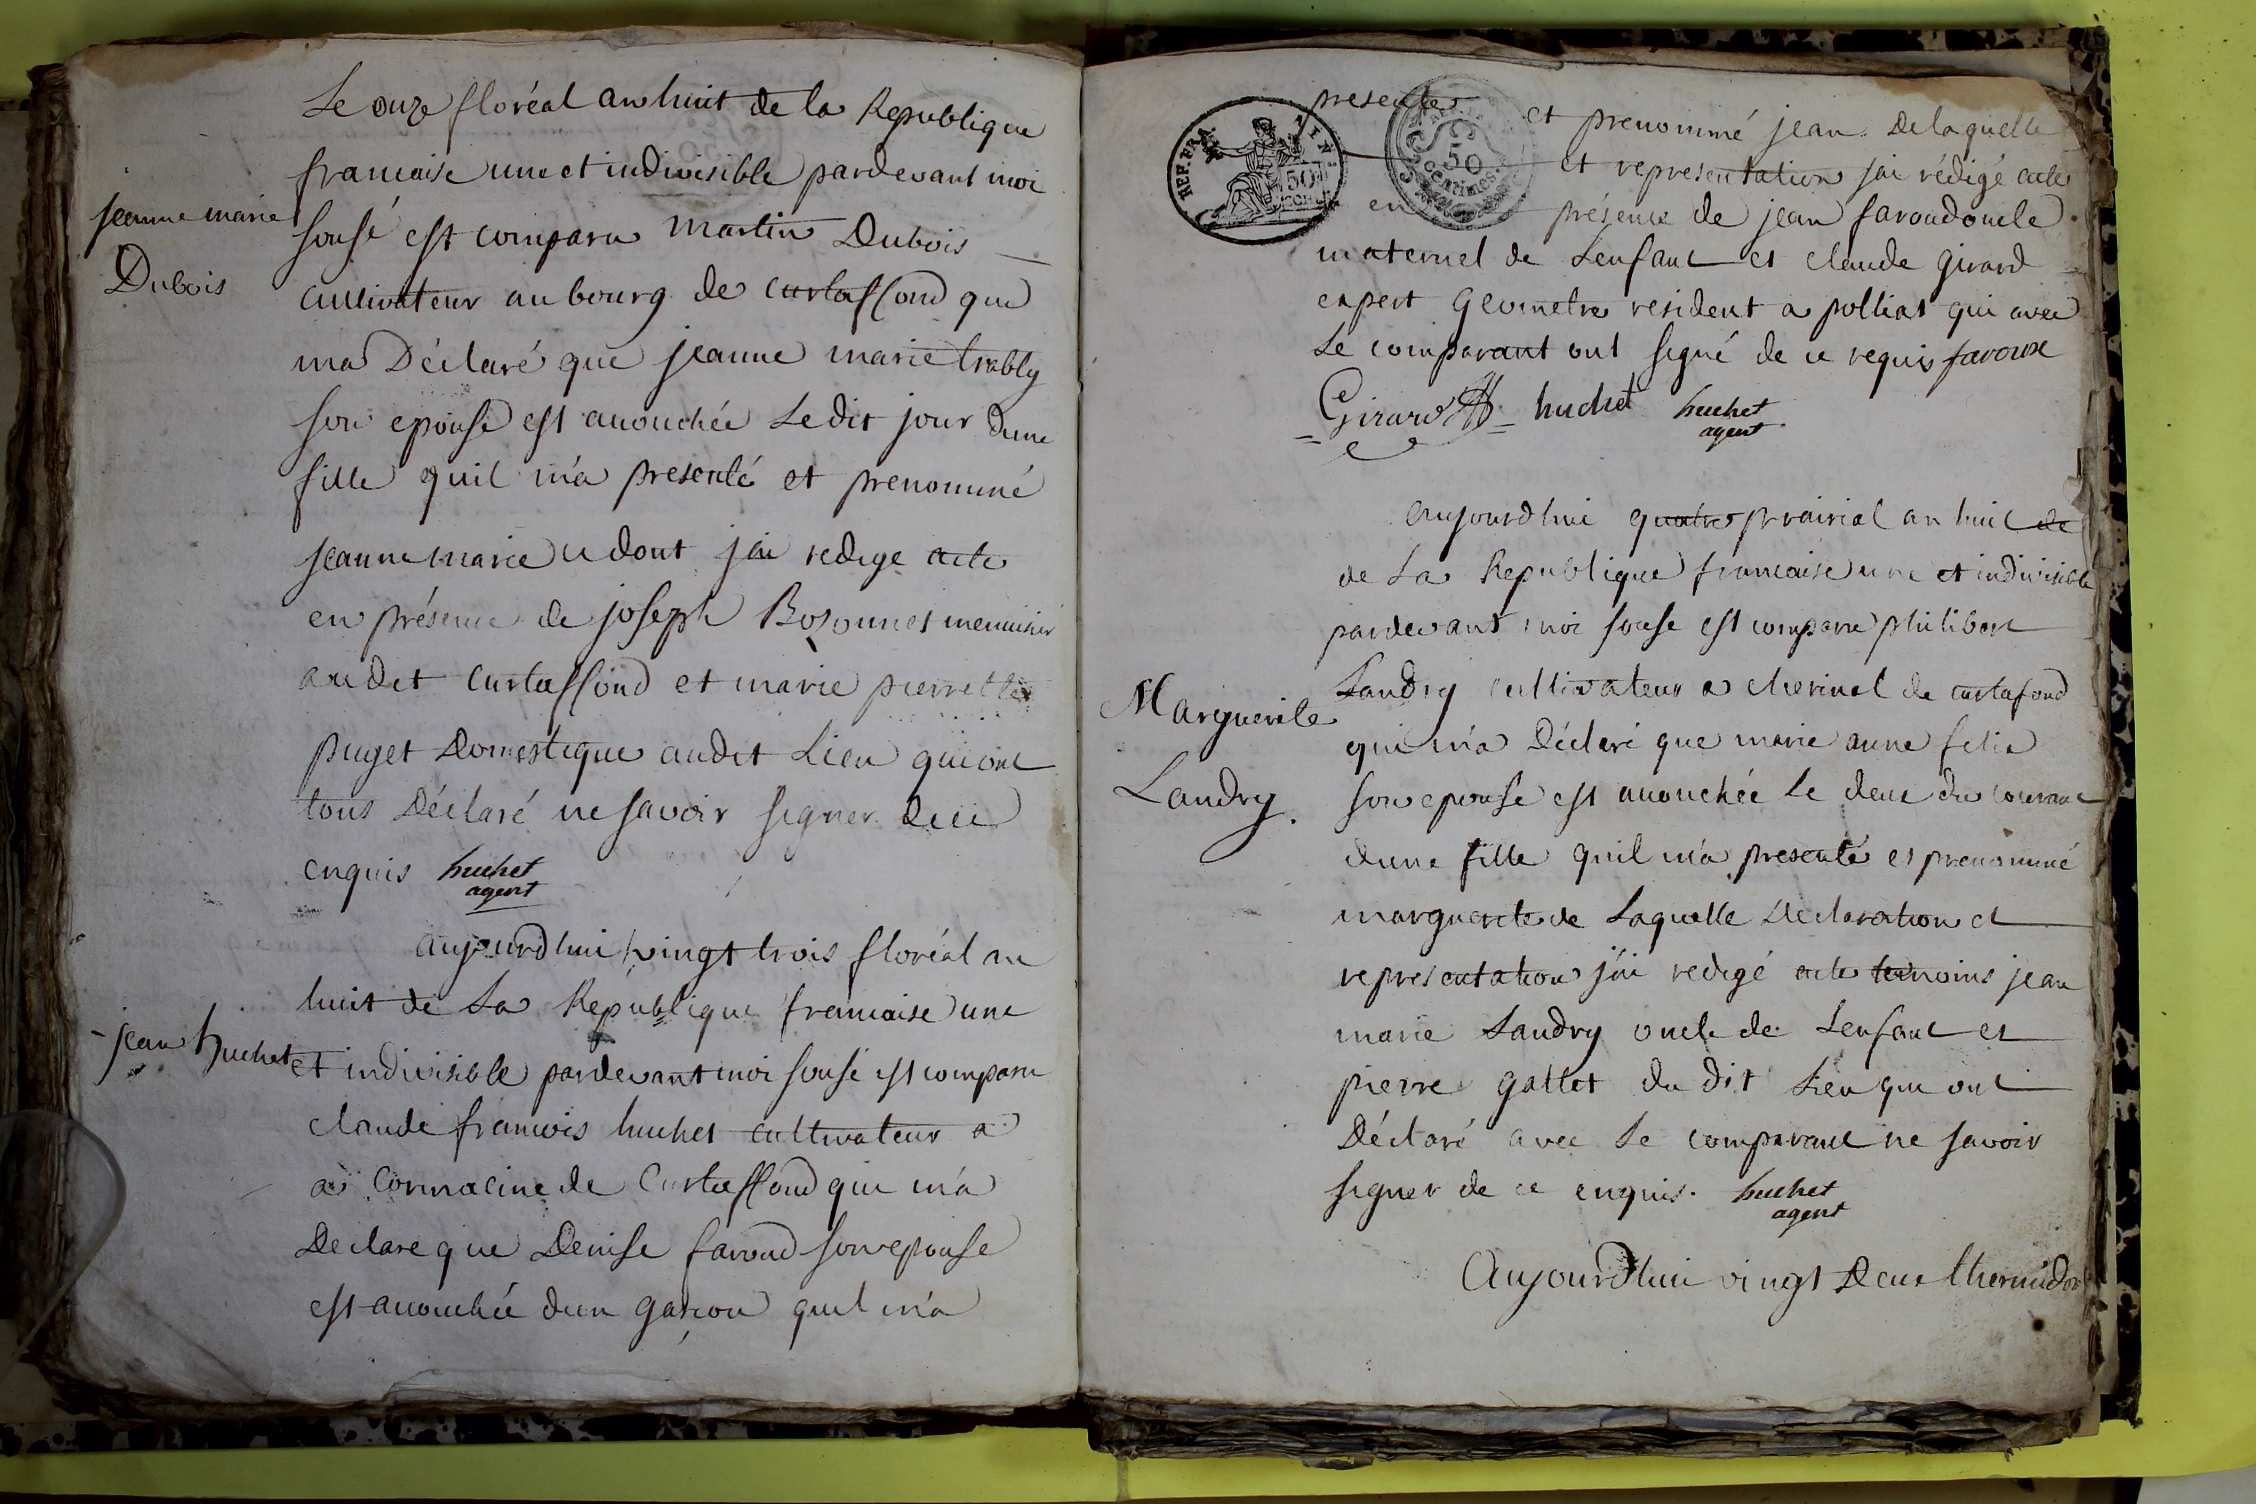 Le onze floréal an huit de la Republique
francaise une et indivisible pardevant moi
jeanne marie
Dubois
sousé est comparu martin Dubois
cultivateur au bourg de curtaffond qui
ma Déclaré que jeanne marie trably
son epouse est accouchée Le dit jour dune
fille quil m'a presenté et prenommé
jeanne marie ce dont jai redige acte
en présence de joseph Bozonnet menuisier
audit Curtaffond et marie pierrette
puget Domestique audit Lieu qui ont
tous Déclaré ne savoir signer de ce
enquis huchet
agent
aujourdhui vingt trois floréal an
huit de La Republique francaise une
jean huchet
et indivisible pardevant moi sousé est comparu
claude francois huchet cultivateur a
a Cormacine de Curtaffond qui m'a
Declare que Denise favoud son epouse
est accouchée dun garcon quil m'a
REP. FRA.
50
CENT.
50
Centimes.
presente et prenommé jean. De laquelle
et representation jai rédigé acte
en présence de jean favoud oncle
maternel de Lenfant et claude girard
expert Geometre resident a polliat qui avec
Le comparant ont signé de ce requis favoux
Girard huchet huchet
agent
aujourdhui quatre prairial an huit de
de La Republique francaise une et indivisible
pardevant moi souse est comparu philibert
Marguerite
Landry.
Landry cultivateur a cherinal de curtafond
qui m'a Déclaré que marie anne felix
son epouse est accouchée Le deux du courant
dune fille quil m'a presenté et prenommé
marguerite de Laquelle Declaration et
representation j'ai redigé acte temoins jean
marie Landry oncle de Lenfant et
pierre gallet du dit Lieu qui ont
Déclaré avec Le comparant ne savoir
signer de ce enquis. huchet
agent
Aujourdhui vingt Deux thermidor